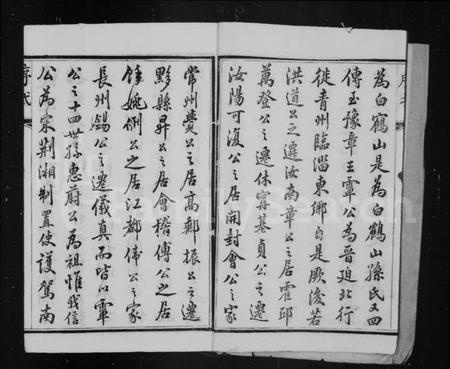 為白鶴山是為白鶴山孫氏又四
傳玉豫章王寗公為晉廹北行
徙青州臨淄東鄉自是厥後若
洪道公之遷汝南章公之居霍邱
萬登公之遷休寗基貞公之遷
汝陽可復公之居開封會公之家
常州贊公之居高郵振公之遷
黟縣昇公之居會稽傅公之居
餘姚侀公之居江都佛公之家
長州錫公之遷儀真而皆以寗
公之十四世孫惠蔚公為祖惟我信
公為宋荆湘制置使護駕南
序
FamilySearch